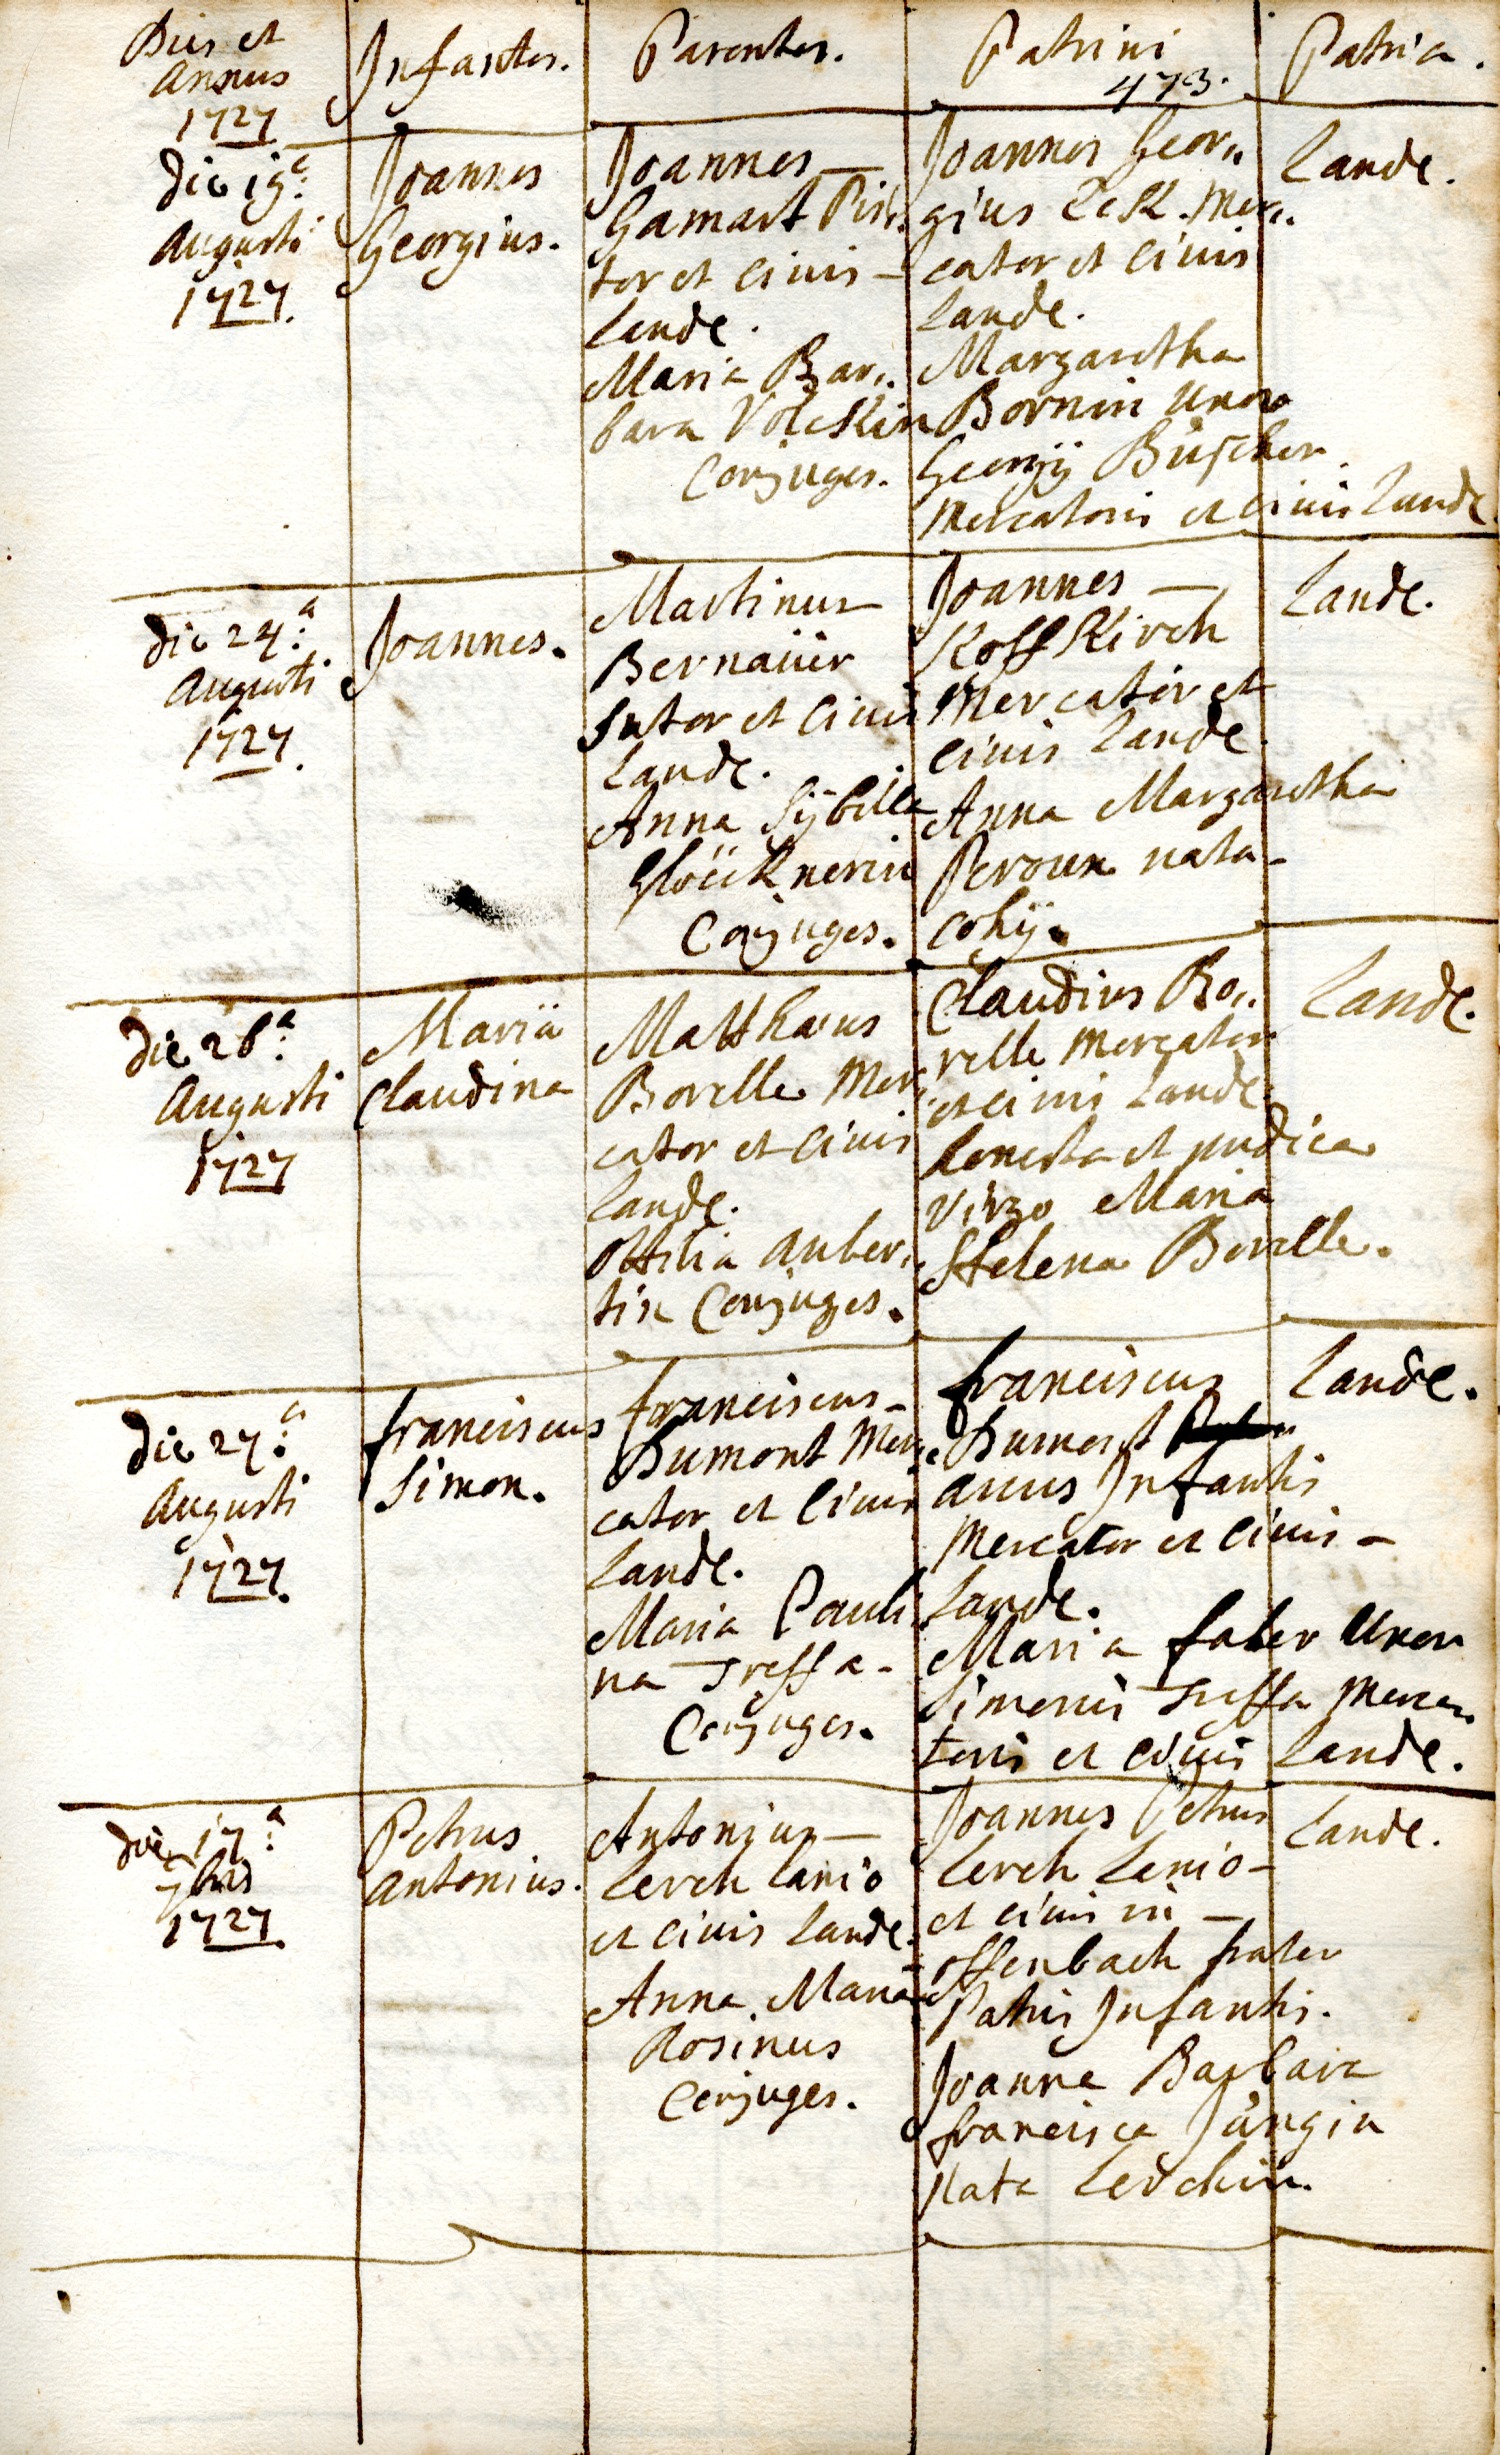 Dies et
Annus
1727
Infantes.
Parentes.
Patrini
473.
Patria.
die 19.a
Augusti
1727.
Joannes
Georgius.
Joannes —
Gamart Pis„
tor et Civis –
Lande.
Maria Bar„
bara Volckin
Conjuges.
Joannes Geor„
gius Zeck. Mer„
cator et Civis
Lande.
Margaretha
Bornin Uxor
Georgÿ Büscher
Mercatoris et Civis Lande.
Lande.
die 24.a
Augusti
1727.
Joannes.
Martinus
Bernaüer
Sutor et Civis
Lande.
Anna Sÿbilla
Glöücknerin
Conjuges.
Joannes —
Koff Kirch
Mercator et
Civis Lande.
Anna Margaretha
Peroux nata –
Lande.
die 26.a
Augusti
1727
Maria
Claudina
Matthæus
Borelle Mer„
cator et Civis
Lande.
Ottilia Auber„
tin Conjuges.
Claudius Bo„
relle Mercator
et Civis Lande.
honesta et pudica
Virgo Maria
Helena Borelle.
Lande.
die 27.a
Augusti
1727.
Franciscus
Simon.
Franciscus –
Dumont Mer„
cator et Civis
Lande.
Maria Pauli
na Treffa –
Conjuges.
Franciscus
Dumont
avus Infantis
Mercator et Civis –
Lande.
Maria Faber Uxor
Simonis Treffa Merca„
toris et Civis Lande.
Lande.
die 17.a
7bris
1727.
Petrus
Antonius.
Antonius —
Lerch Lanio
et Civis Lande.
Anna Maria
Rosinus
Conjuges.
Joannes Petrus
Lerch Lanio –
et Civis in —
Offenbach frater
Patris Infantis.
Joanna Barbara
Francisca Jungin
Nata Lerchin.
Lande.